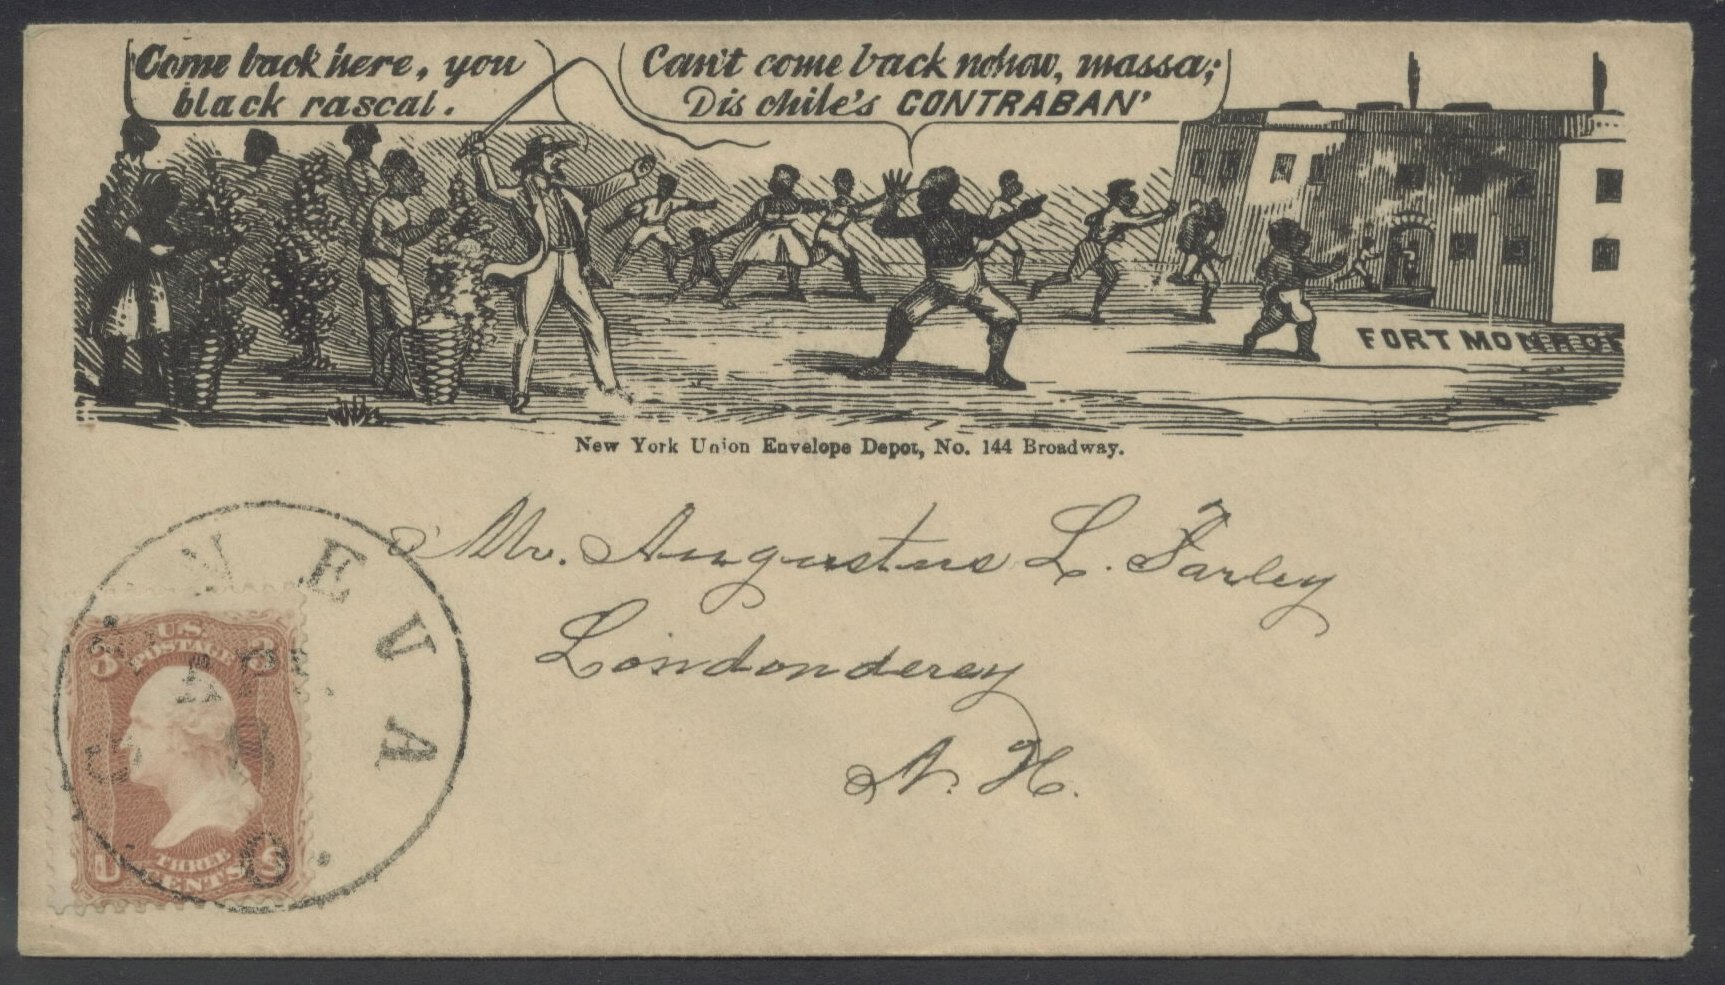 Come back here, you
black rascal.
Can't come back nohow, massa;
Dis chile's CONTRABAN'
FORT MONROE
New York Union Envelope Depot, No. 144 Broadway.
Mr. Augustus L. Farley
Londonderey
N. H.
NEVA
O.
U.S.
POSTAGE
3 3
THREE
CENTS
U S